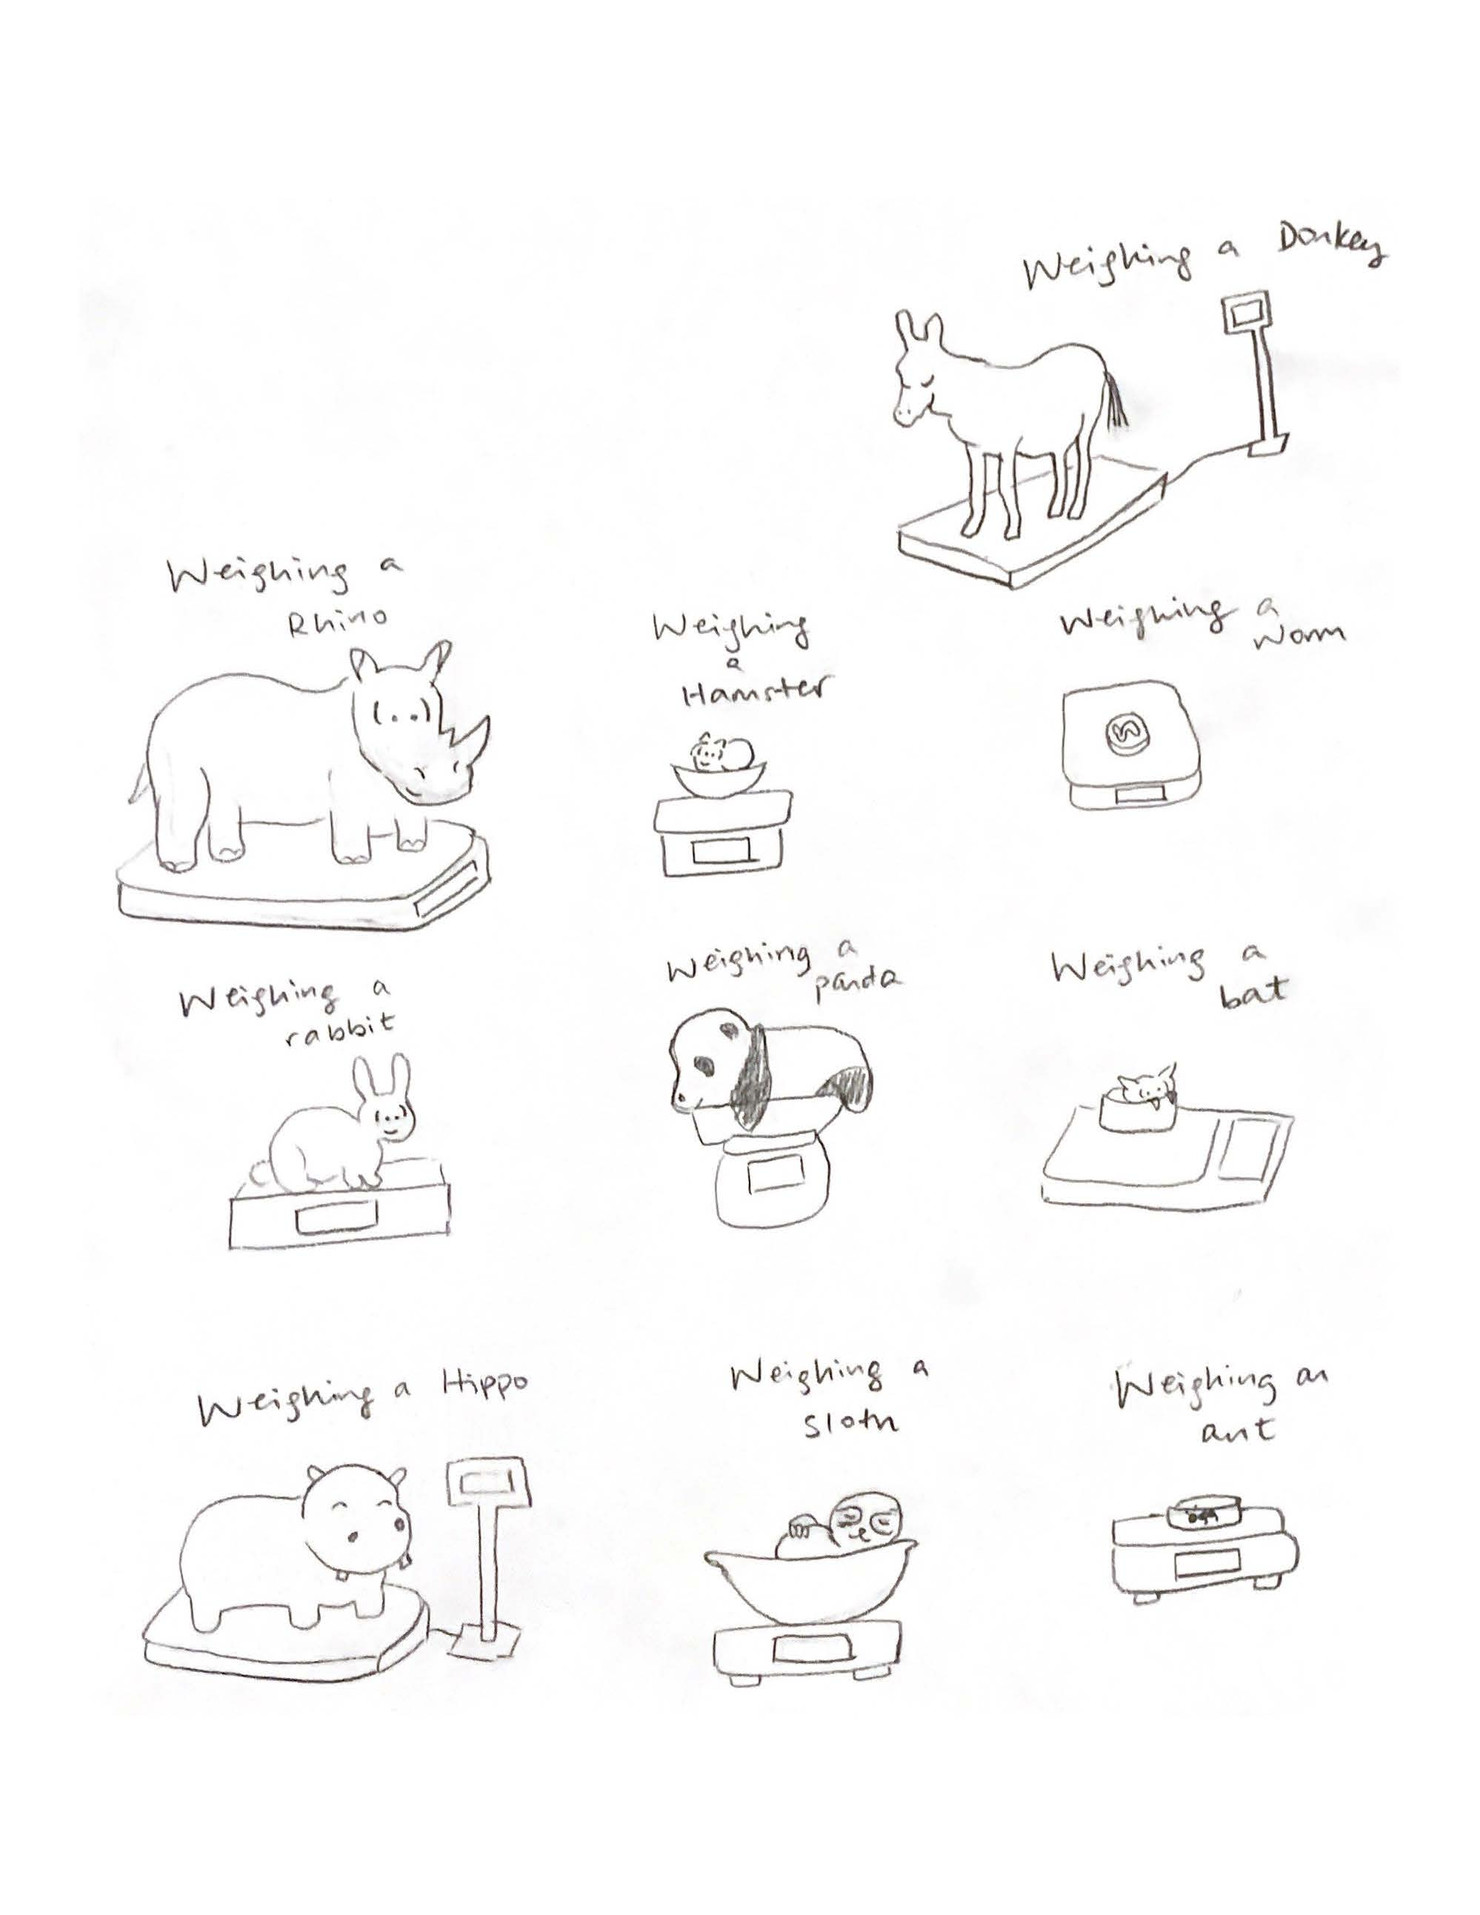 Weighing a Donkey
Weighing a
Rhino
Weighing
a
Hamster
Weighing a
Worm
Weighing a
rabbit
Weighing a
panda
Weighing a
bat
Weighing a Hippo
Weighing a
sloth
Weighing an
ant